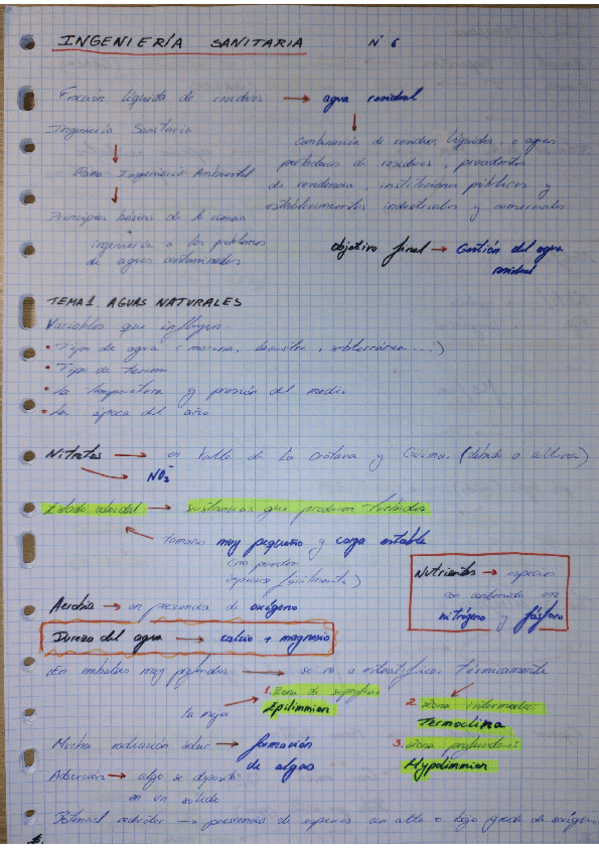 INGENIERÍA SANITARIA Nº 6
Fracción líquida de residuos → agua residual
Ingeniería Sanitaria
Combinación de residuos líquidos, o aguas
portadoras de residuos, procedentes
Rama Ingeniería Ambiental
de residencia, instituciones públicas y
establecimientos industriales y comerciales
Principios básicos de la ciencia
ingeniería a los problemas
de aguas contaminadas
objetivo final → Gestión del agua
residual
TEMA 1 AGUAS NATURALES
Variables que influyen:
• Tipo de agua (marina, lacustre, subterránea...)
• Tipo de terreno
• La temperatura y presión del medio
• La época del año
Nitratos → en Valle de La Orotava y Güímar (debido a cultivos)
NO₃⁻
Estado coloidal → sustancias que producen turbidez
tamaño muy pequeño y carga estable
(no pueden
separarse fácilmente)
Nutrientes → especies
con contenido en
nitrógeno y fósforo
Aerobia → en presencia de oxígeno
Dureza del agua → calcio + magnesio
En embalses muy profundos → se va a estratificar térmicamente
1. Zona de superficie
Epilimnion
la mejor
2. Zona intermedia:
Termoclina
3. Zona profundidad:
Hypolimnion
Mucha radiación solar → formación
de algas
Adsorción → algo se deposita
en un sólido
Potencial reductor → presencia de especies con alto o bajo grado de oxígeno